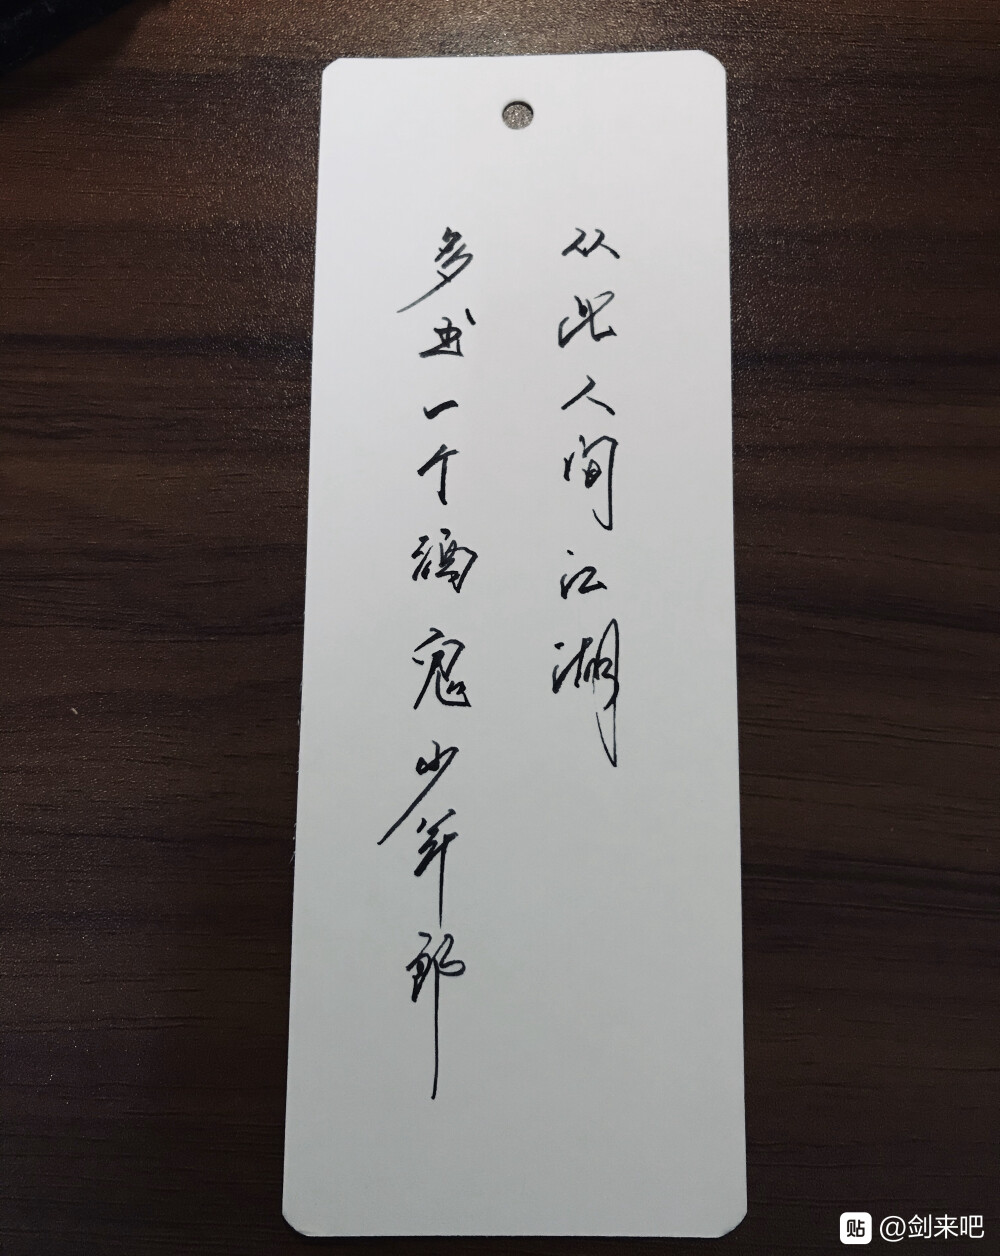 从此人间江湖
多出一个酒鬼少年郎
贴 @剑来吧